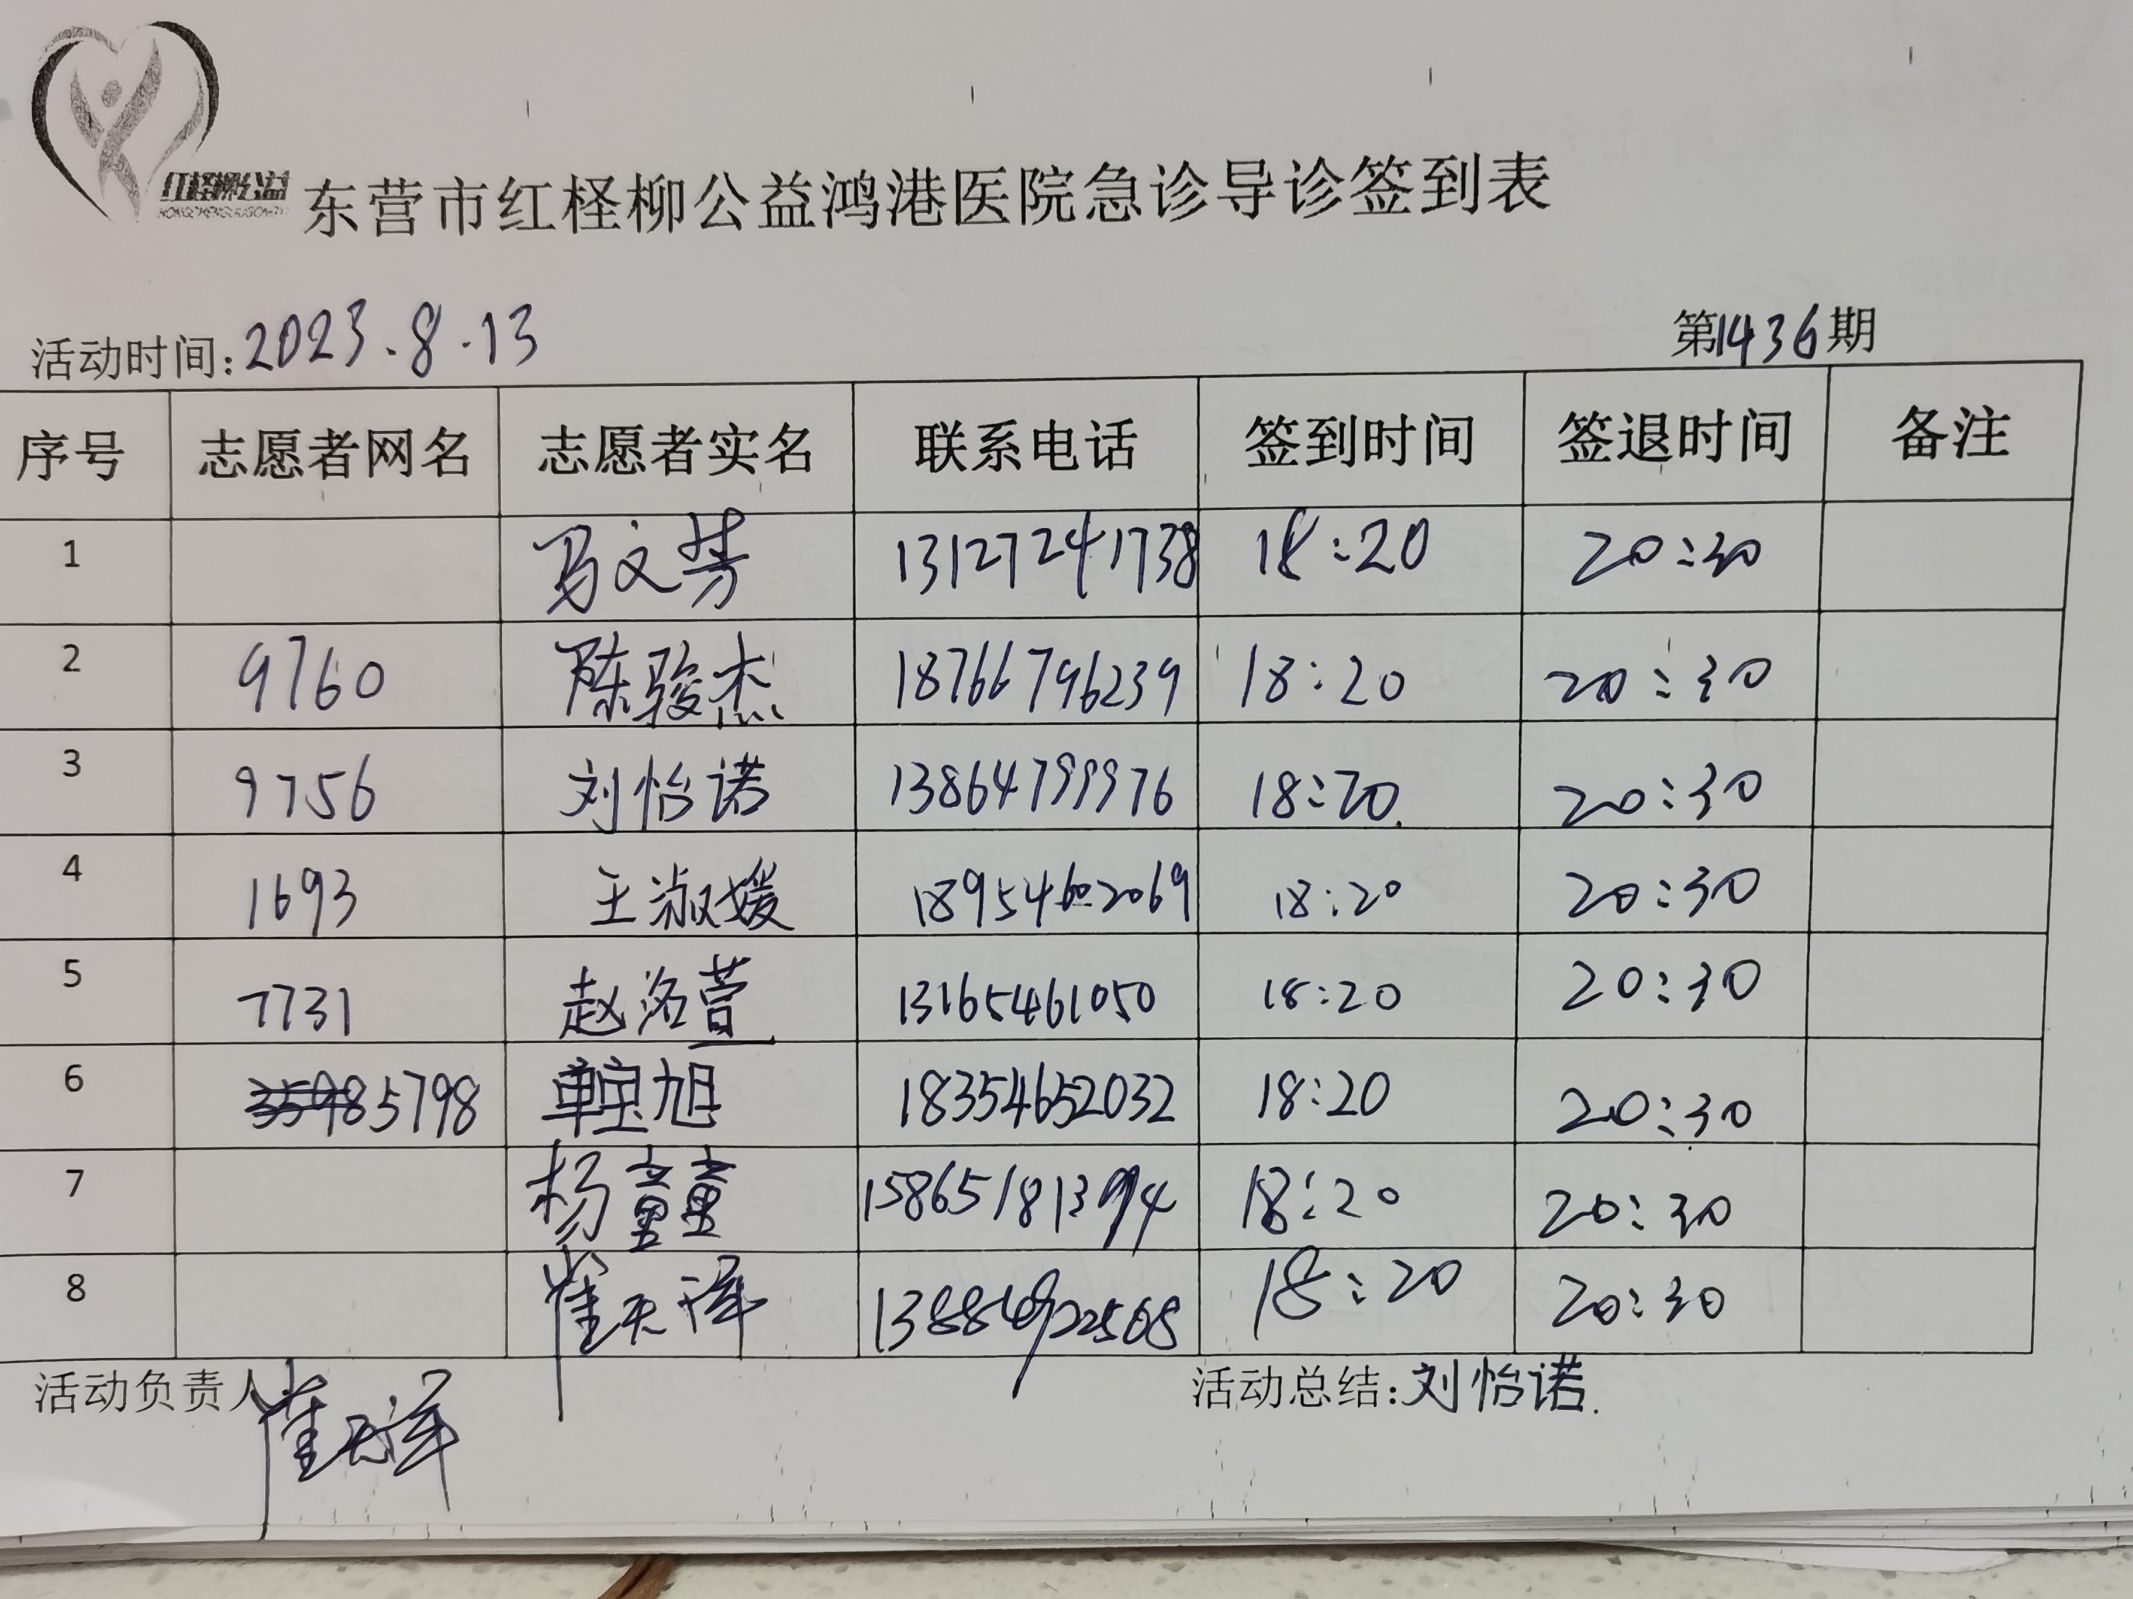 红柽柳公益
东营市红柽柳公益鸿港医院急诊导诊签到表
活动时间:2023.8.13 第1436期
序号 志愿者网名 志愿者实名 联系电话 签到时间 签退时间 备注
1 马文芳 13127241738 18:20 20:30
2 9760 陈骏杰 18766796239 18:20 20:30
3 9756 刘怡诺 13864799976 18:20 20:30
4 1693 王淑媛 18954602069 18:20 20:30
5 7731 赵洺萱 13165461050 18:20 20:30
6 85798 旭 18354652032 18:20 20:30
7 杨童童 18:20 20:30
8 崔天泽 18:20 20:30
活动负责人 崔天泽 活动总结:刘怡诺.